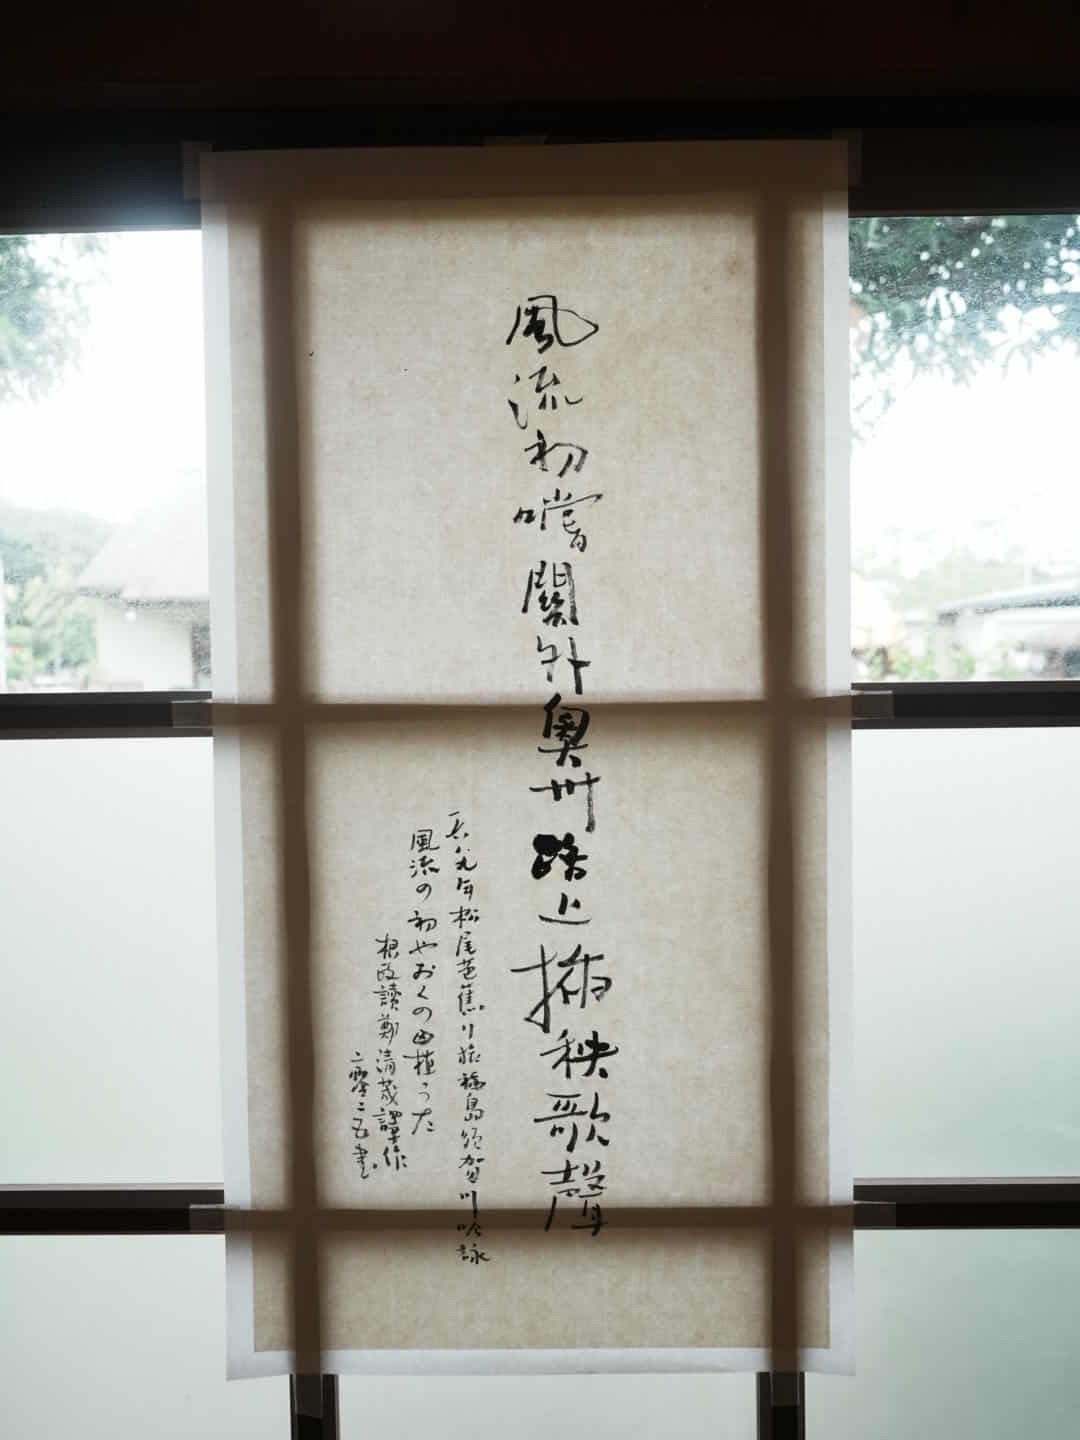 風流初嚐關外奧州路上插秧歌聲
一六八九年松尾芭蕉行旅福島須賀川吟詠
風流の初やおくの田植うた
根改讀鄭清茂譯作
二零二五書